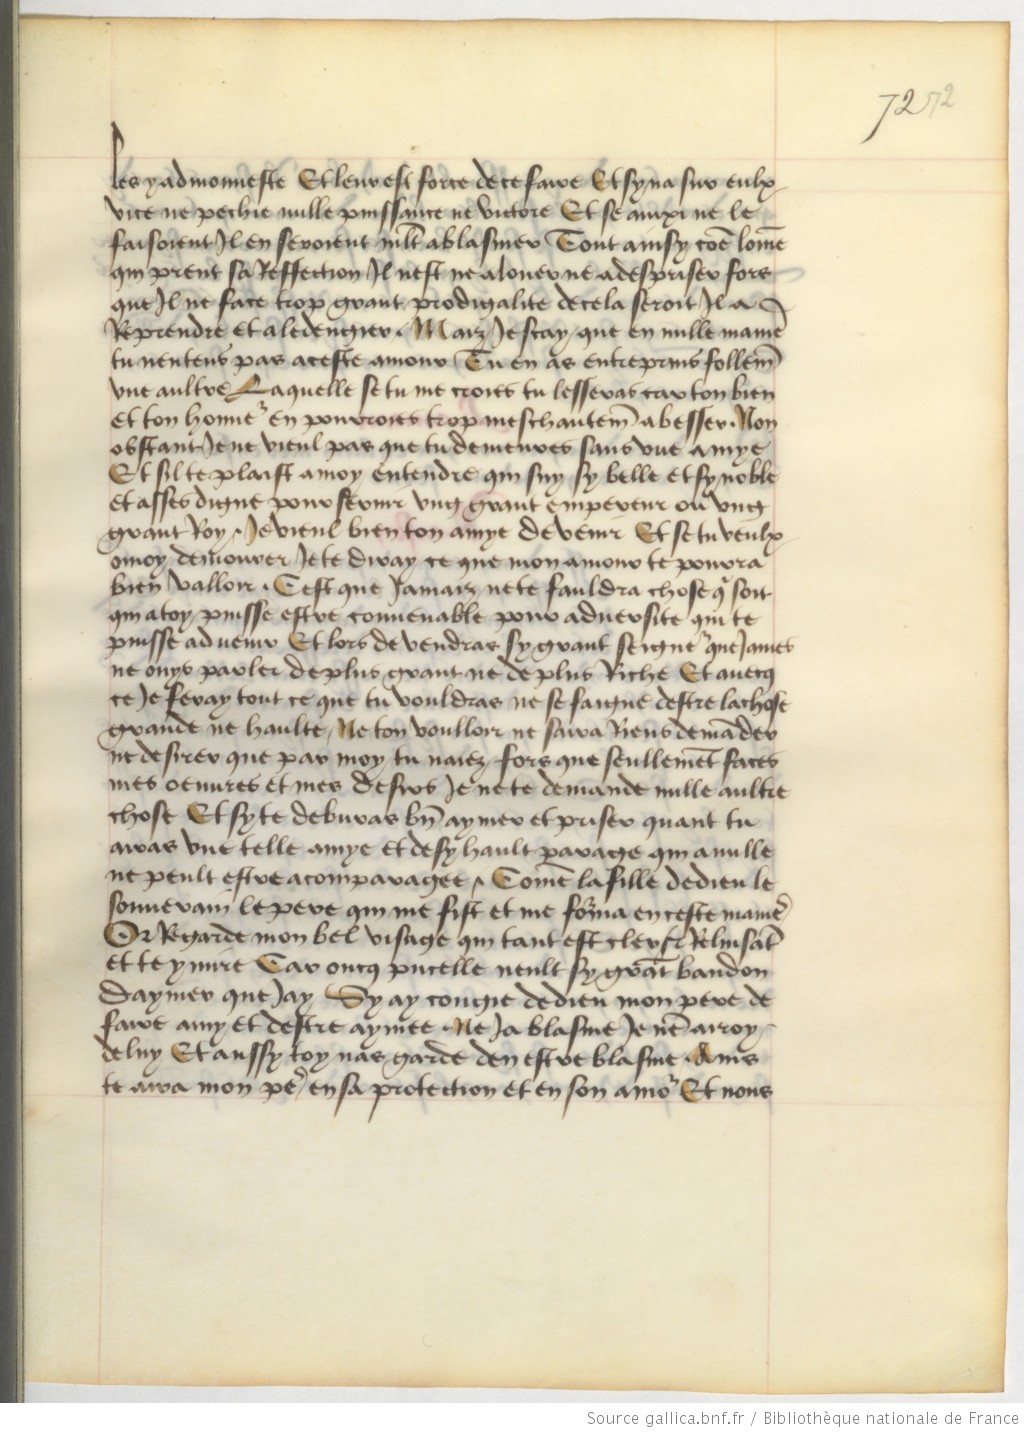 72 72
les y admonneste Et leur est force de ce faire Et sy na sur eulx
vice ne pechie nulle puissance ne victore Et se ainxi ne le
faisoient Il en seroient mlt ablasmer Tout ainsy cõe lomẽ
qui prent sa Reffection Il nest ne alouer ne adespriser fors
que Il ne face trop grant prodigalite de cela seroit Il a
Reprendre et aledengier. Maiz Je scay que en nulle manie᷑
tu nentens pas aceste amour Tu en as entreprins follem̃
vne aultre Laquelle se tu me croies tu lesseras car ton bien
et ton honne᷑ en pourroies trop meschantem̃ abesser. Non
obstant Je ne vieul pas que tu demeures sans vne amye
Et sil te plaist amoy entendre qui suy sy belle et sy noble
et asses digne pour seruir vng grant empereur ou vng
grant Roy. Je vieul bien ton amye deuenir Et se tu veulx
o moy demourer Je te diray ce que mon amour te pourra
bien valloir. Cest que Jamaiz ne te fauldra chose q̃ soit
qui atoy puisse estre conuenable pour aduersite qui te
puisse aduenir Et lors deuendras sy grant seigne᷑ que James
ne ouys parler de plus grant ne de plus Riche Et auecq
ce Je feray tout ce que tu vouldras ne se faigne destre la chose
grande ne haulte, Ne ton voulloir ne saira Riens demãder
ne desirer que par moy tu naiez fors que seullemẽt faces
mes oeuures et mes desirs Je ne te demande nulle aultre
chose Et sy te deburas bñ aymer et priser quant tu
airas vne telle amye et de sy hault parage qui a nulle
ne peult estre acomparagee. Comẽ la fille de dieu le
souuerain le pere qui me fist et me forma en ceste manie᷑
Or Regarde mon bel visage qui tant est cler et Reluisãt
et te y mire Car oncq pucelle neult sy grãt bandon
Daymer que Jay Sy ay congie de dieu mon pere de
faire amy et destre aymee. Ne Ja blasme Je nẽ airoy
de luy Et aussy toy nas garde den estre blasme. Ains
te aira mon pe᷑ en sa protection et en son amo᷑ Et nous
Source gallica.bnf.fr / Bibliothèque nationale de France